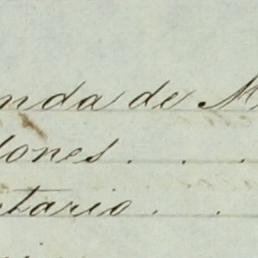 nda de M
dones . . .
ntario . .